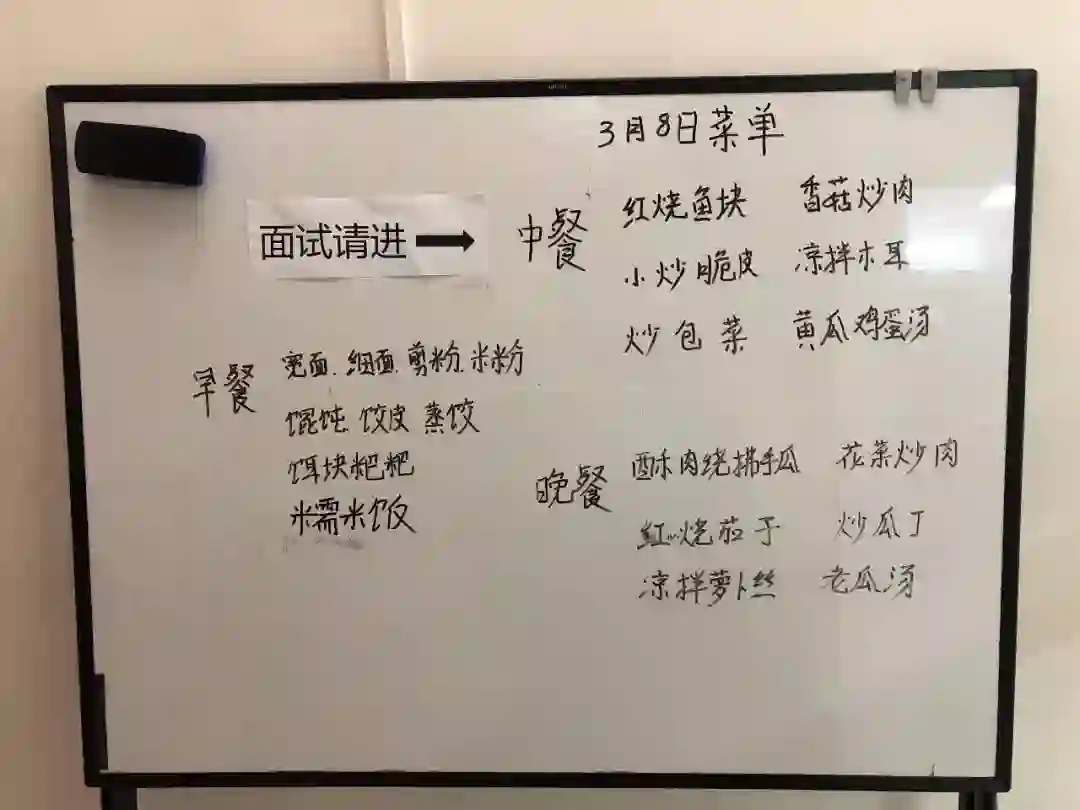 3月8日菜单
面试请进
早餐
宽面.细面.剪粉.米粉
馄饨 饺皮 蒸饺
饵块粑粑
糯米饭
中餐
红烧鱼块 香菇炒肉
小炒脆皮 凉拌木耳
炒包菜 黄瓜鸡蛋汤
晚餐
酥肉烧拂手瓜 花菜炒肉
红烧茄子 炒瓜丁
凉拌萝卜丝 老瓜汤